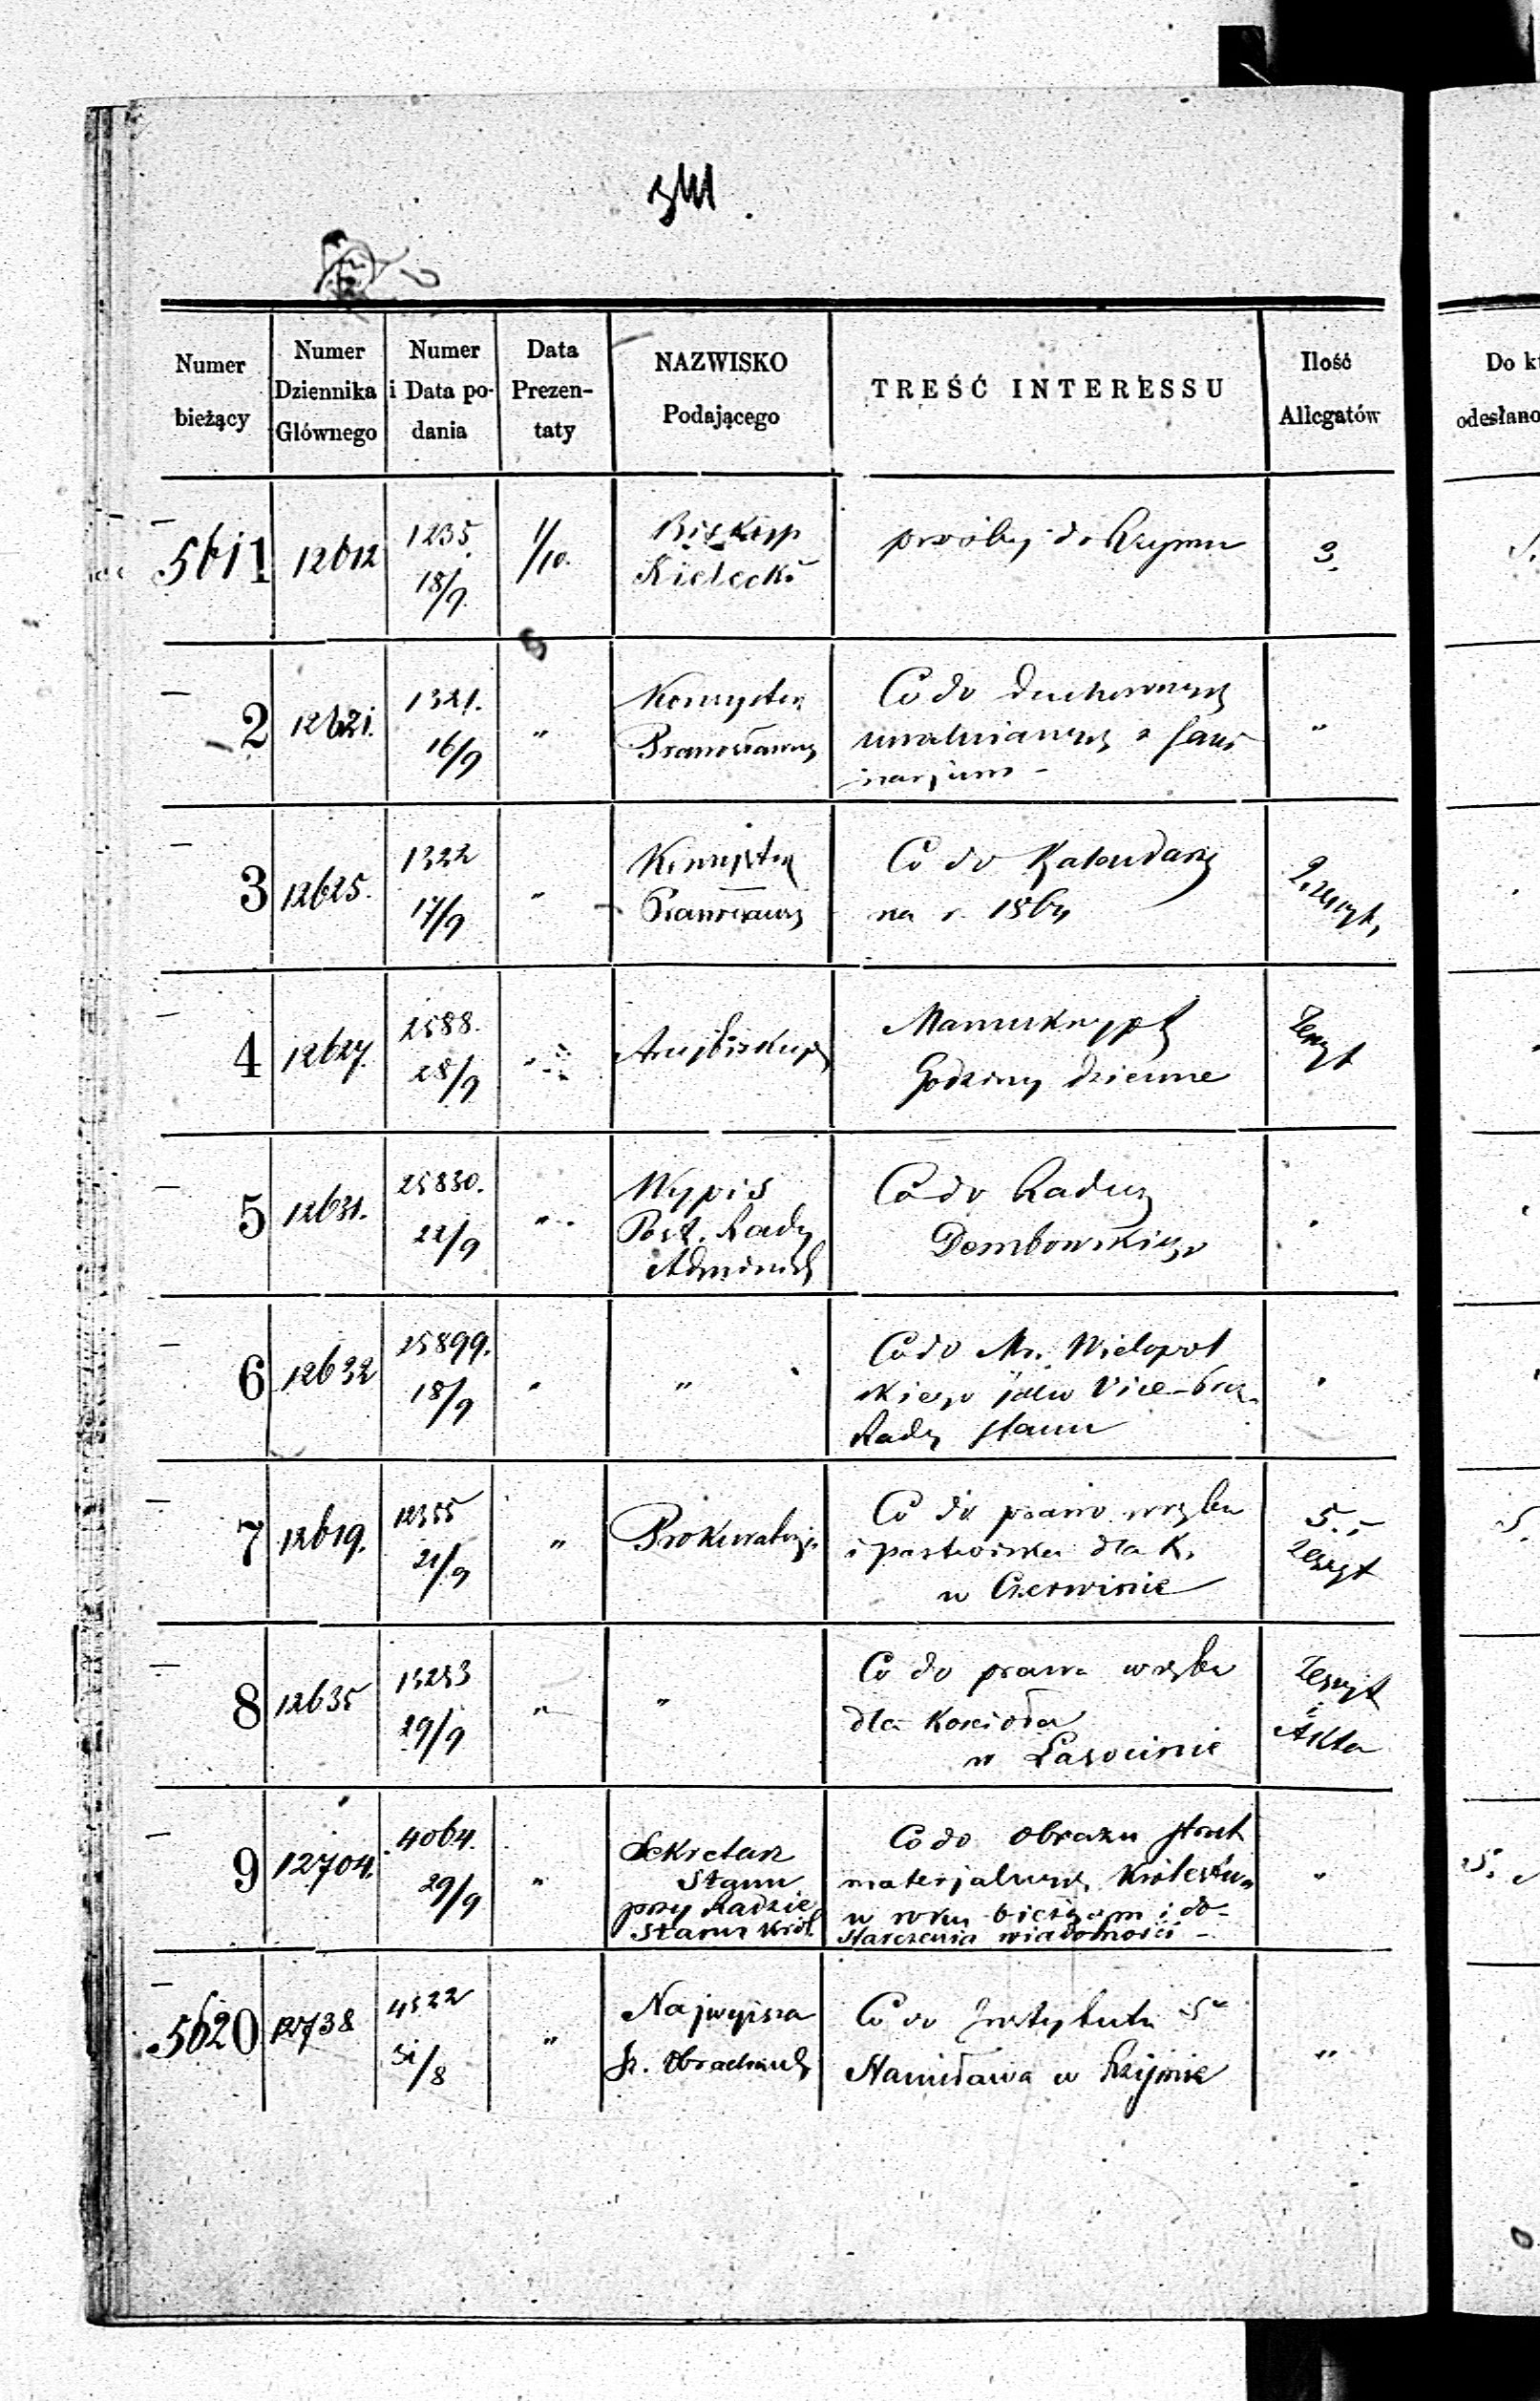 Numer bieżący
Numer Dziennika Głównego
Numer i Data podania
Data Prezentaty
NAZWISKO Podającego
TREŚĆ INTERESSU
Ilość Allegatów
Do k
odesłano
5611 12612 1235. 18/9. 1/10. Biskup Kielecki prośby do Rzymu 3.
2 12621. 1321. 16/9 " Co do duchownych uwalnianych z
3 12625. 1322 17/9 " Co do Kalendarzy na r. 1864
4 12627. 2588. 28/9 " Arcybiskup Manuskrypt Godziny dzienne Zeszyt
5 12631. 25830. 22/9 " Wypis Post. Rady Administ Co do Radcy Dembowskiego
6 12632 25899. 18/9 " " Co do Mr. Wielopolskiego jako Vice-Prez. Rady Stanu
7 12619. 12355 21/9 " Prokuratorja Co do prawo wrębu i pastwiska dla K. w Czerwinie 5. i Zeszyt
8 12635 13253 29/9 " " Co do prawa wrębu dla Kościoła w Lasocinie Zeszyt i Akta
9 12704. 4064. 29/9 " Sekretarz Stanu przy Radzie Stanu Król. Co do obrazu strat materjalnych Królestwa w roku bieżącym i dostarczenia wiadomości - "
5620 12738 4522 31/8 " Najwyższa Iz. Obrachunk Co do Instytutu Sº Stanisława w Rzymie "